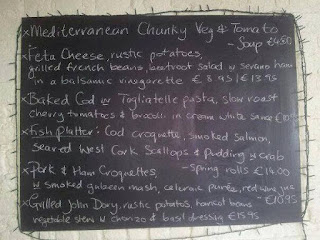 x Mediterranean Chunky Veg & Tomato
- Soup €4.50
x Feta Cheese, rustic potatoes,
grilled french beans, beetroot salad w serano ham
in a balsamic vinegarette € 8.95 | € 13.95
x Baked Cod w Tagliatelle pasta, slow roast
cherry tomatoes & brocolli in cream white sauce
x Fish Platter: Cod croquette, smoked salmon,
seared West Cork Scallops & Pudding & crab
- spring rolls € 14.00
x Pork & Ham Croquettes,
w smoked gubeen mash, celeriac purée, red wine jus
- €10.95
x Grilled John Dory, rustic potatos, haricot beans
vegetable stew w chorizo & basil dressing €15.95